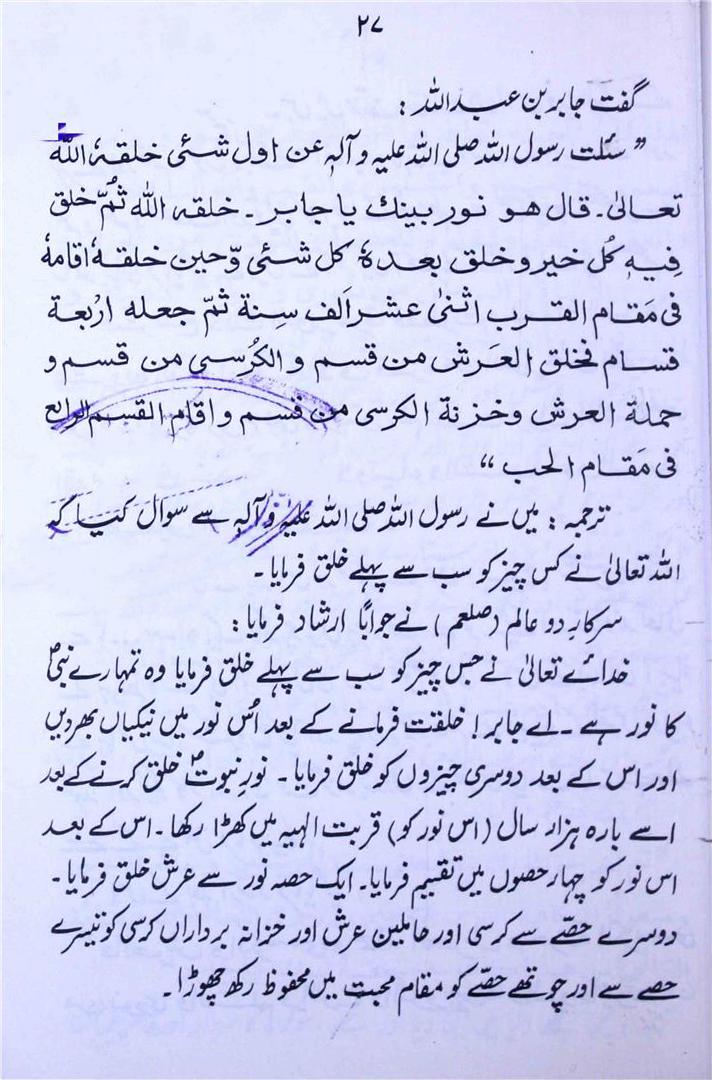 ۲۷
گفت جابر بن عبد اللہ :
” سئلت رسول اللہ صلی اللہ علیہ و آلہٖ عن اول شئی خلقہٗ اللّٰہ
تعالیٰ۔ قال ھو نور بینك یا جابر۔ خلقہ اللہ ثمّ خلق
فِیہِ کُل خیر و خلق بعدہٗ کل شئی وّحین خلقہٗ اقامہٗ
فی مَقام القرب اثنیٰ عشر اَلف سِنة ثمّ جعلہ اربعة
قسام فخلق العَرش من قسم و الکُرسی من قسم و
حملة العرش وخزنة الکرسی من قسم و اقام القسم الرابع
فی مَقام الحب “
ترجمہ : میں نے رسول اللہ صلی اللہ علیہ و آلہٖ سے سوال کیا کہ
اللہ تعالیٰ نے کس چیز کو سب سے پہلے خلق فرمایا۔
سرکارِ دو عالم (صلعم) نے جواباً ارشاد فرمایا :
خدائے تعالیٰ نے جس چیز کو سب سے پہلے خلق فرمایا وہ تمہارے نبیؐ
کا نور ہے۔ اے جابر! خلقت فرمانے کے بعد اُس نور میں نیکیاں بھر دیں
اور اس کے بعد دوسری چیزوں کو خلق فرمایا۔ نورِ نبوتؐ خلق کرنے کے بعد
اسے بارہ ہزار سال (اس نور کو) قربت الہیہ میں کھڑا رکھا۔ اس کے بعد
اس نور کو چہار حصوں میں تقسیم فرمایا۔ ایک حصہ نور سے عرش خلق فرمایا۔
دوسرے حصّے سے کرسی اور حاملین عرش اور خزانہ برداراں کرسی کو تیسرے
حصے سے اور چوتھے حصّے کو مقام محبت میں محفوظ رکھ چھوڑا۔